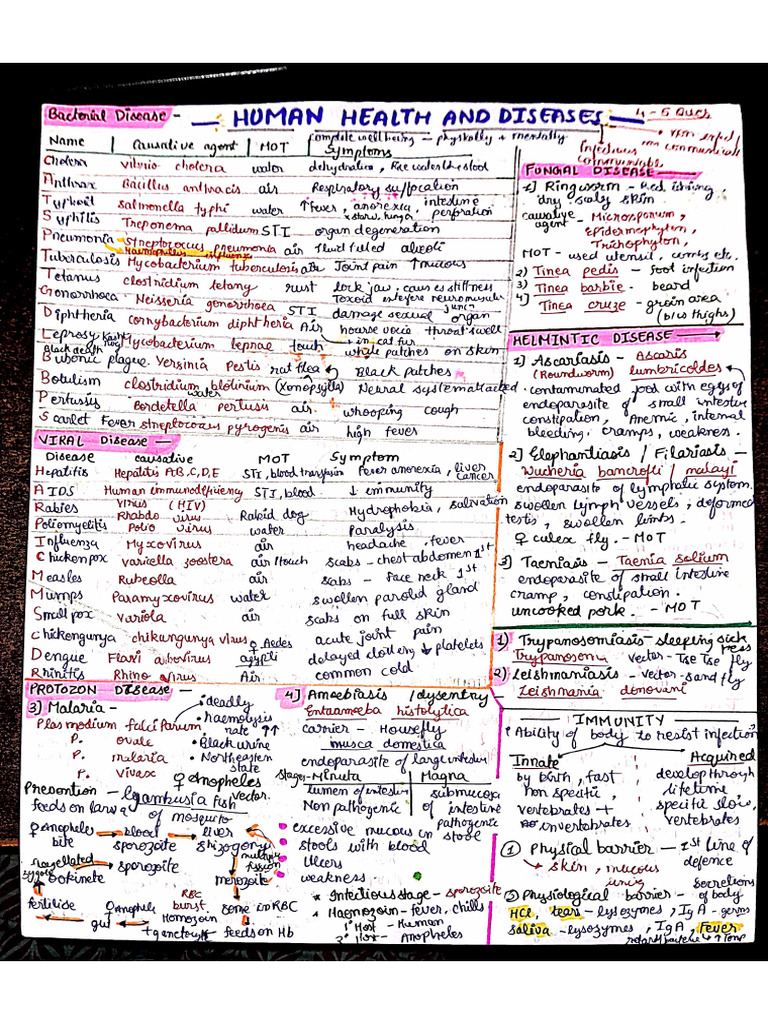 Bacterial Disease - HUMAN HEALTH AND DISEASES 4-5 Ques
complete well being - physically + mentally
Name | Causative agent | MOT | Symptoms
Cholera vibrio cholera water dehydration, Rice water like stool
Anthrax Bacillus anthracis air Respiratory suffocation
Typhoid Salmonella typhi water ↑ fever, anorexia, intestine perforation
Syphilis Treponema pallidum STI organ degeneration
Pneumonia Streptococcus pneumonia air fluid filled alveoli
Haemophilus influenza
Tuberculosis Mycobacterium tuberculosis air Joint pain ↑ mucous
Tetanus clostridium tetany rust lock jaw, causes stiffness
Gonorrhoea Neisseria gonorrhoea STI damage sexual organ
Toxoid interfere neuromuscular junc
Diphtheria cornybacterium diphtheria Air hoarse vocie throat swell
Leprosy Mycobacterium leprae touch white patches on skin
Black death
Bubonic plague Yersinia Pestis rat flea (Xenopsylla) Black patches
Botulism clostridium blotirium Neural system attacked
water
Pertusis Bordetella pertusis air whooping cough
Scarlet Fever streptococcus pyrogenis air high fever
VIRAL Disease -
Disease causative MOT Symptom
Hepatitis Hepatitis A,B,C,D,E STI, blood transfusion Fever anorexia, liver cancer
AIDS Human immunodificiency virus (HIV) STI, blood ↓ immunity
Rabies Rhabdo virus Rabid dog Hydrophobia, salivation
Poliomyelitis Polio virus water Paralysis
Influenza Myxovirus air headache, fever
Chickenpox variella zoostera air/touch scabs - chest abdomen 1st
Measles Rubeolla air scabs - face neck 1st
Mumps Paramyxovirus water swollen parotid gland
Small pox Variola air scabs on full skin
Chickengunya chikungunya virus ♀ Aedes acute joint pain
Dengue Flavi arbovirus agypti delayed clottery ↓ platelets
Rhinitis Rhino virus Air common cold
PROTOZON DISEASE -
3) Malaria -
Plasmodium falciparum
P. ovale
P. malaria
P. vivax
• deadly
• haemolysis rate ↑↑
• Black urine
• Northeastern state
♀ Anopheles vector.
Prevention - Gambusia fish
feeds on larva of mosquito
♀ Anopheles bite → blood sporozoite → liver shizogony
multiple fission
merozoite
some in RBC
feeds on Hb
RBC burst
Homozoin + gamctocyte
♀ Anopheles gut
fertilise
flagellated zygote
Ookinete
sporozoite
4] Amoebiasis /dysentry
Entaamoeba histolytica
carrier - Housefly
musca domestica
endoparasite of large intestine
Stages - Minuta Magna
lumen of intestine submucosa of intestine
Non pathogenic pathogenic
• excessive mucous in stool
• stools with blood
• Ulcers
• weakness.
* Infectious stage - sporozoite
* Haemozoin - fever, chills
1° Host - Human
2° Host - Anopheles
Infectious
communicable
FUNGAL DISEASE -
1] Ringworm - Red, itching,
dry scaly skin
causative agent - Microsporum,
Epidermophyton,
Trichophyton,
MOT - used utensil, combs etc.
2) Tinea pedis - foot infection
3) Tinea barbie - beard
4] Tinea cruze - groin area
(b/w thighs)
HELMINTIC DISEASE -
1) Ascariasis - Ascaris
(Roundworm) lumbricoldes
• contaminated food with eggs of
endoparasite of small intestine
constipation, Anemic, internal
bleeding, cramps, weakness.
2] Elephantiasis / Filariasis -
Wucheria bancrofti / malayi
endoparasite of lymphatic system.
swollen lymph vessels, deformed
testis, swollen limbs.
♀ culex fly. - MOT
3] Taeniasis - Taenia solium
endoparasite of small intestine
cramp, constipation.
uncooked pork. - MOT
1) Trypanosomiasis - sleeping sickness
Trypanosoma vector - Tse tse fly
2) Leishmaniasis - vector sand fly
Leishmania donovani
IMMUNITY
↑ Ability of body to resist infection
Innate Acquired
by birth, fast develop through
non specific, lifetime,
vertebrates + specific slow,
invertebrates vertebrates
① Physical barrier - 1st line of defence
→ skin, mucous
② Physiological barrier - secretions of body
HCl, tears - lysozymes, IgA - germs
saliva - lysozymes, IgA, Fever